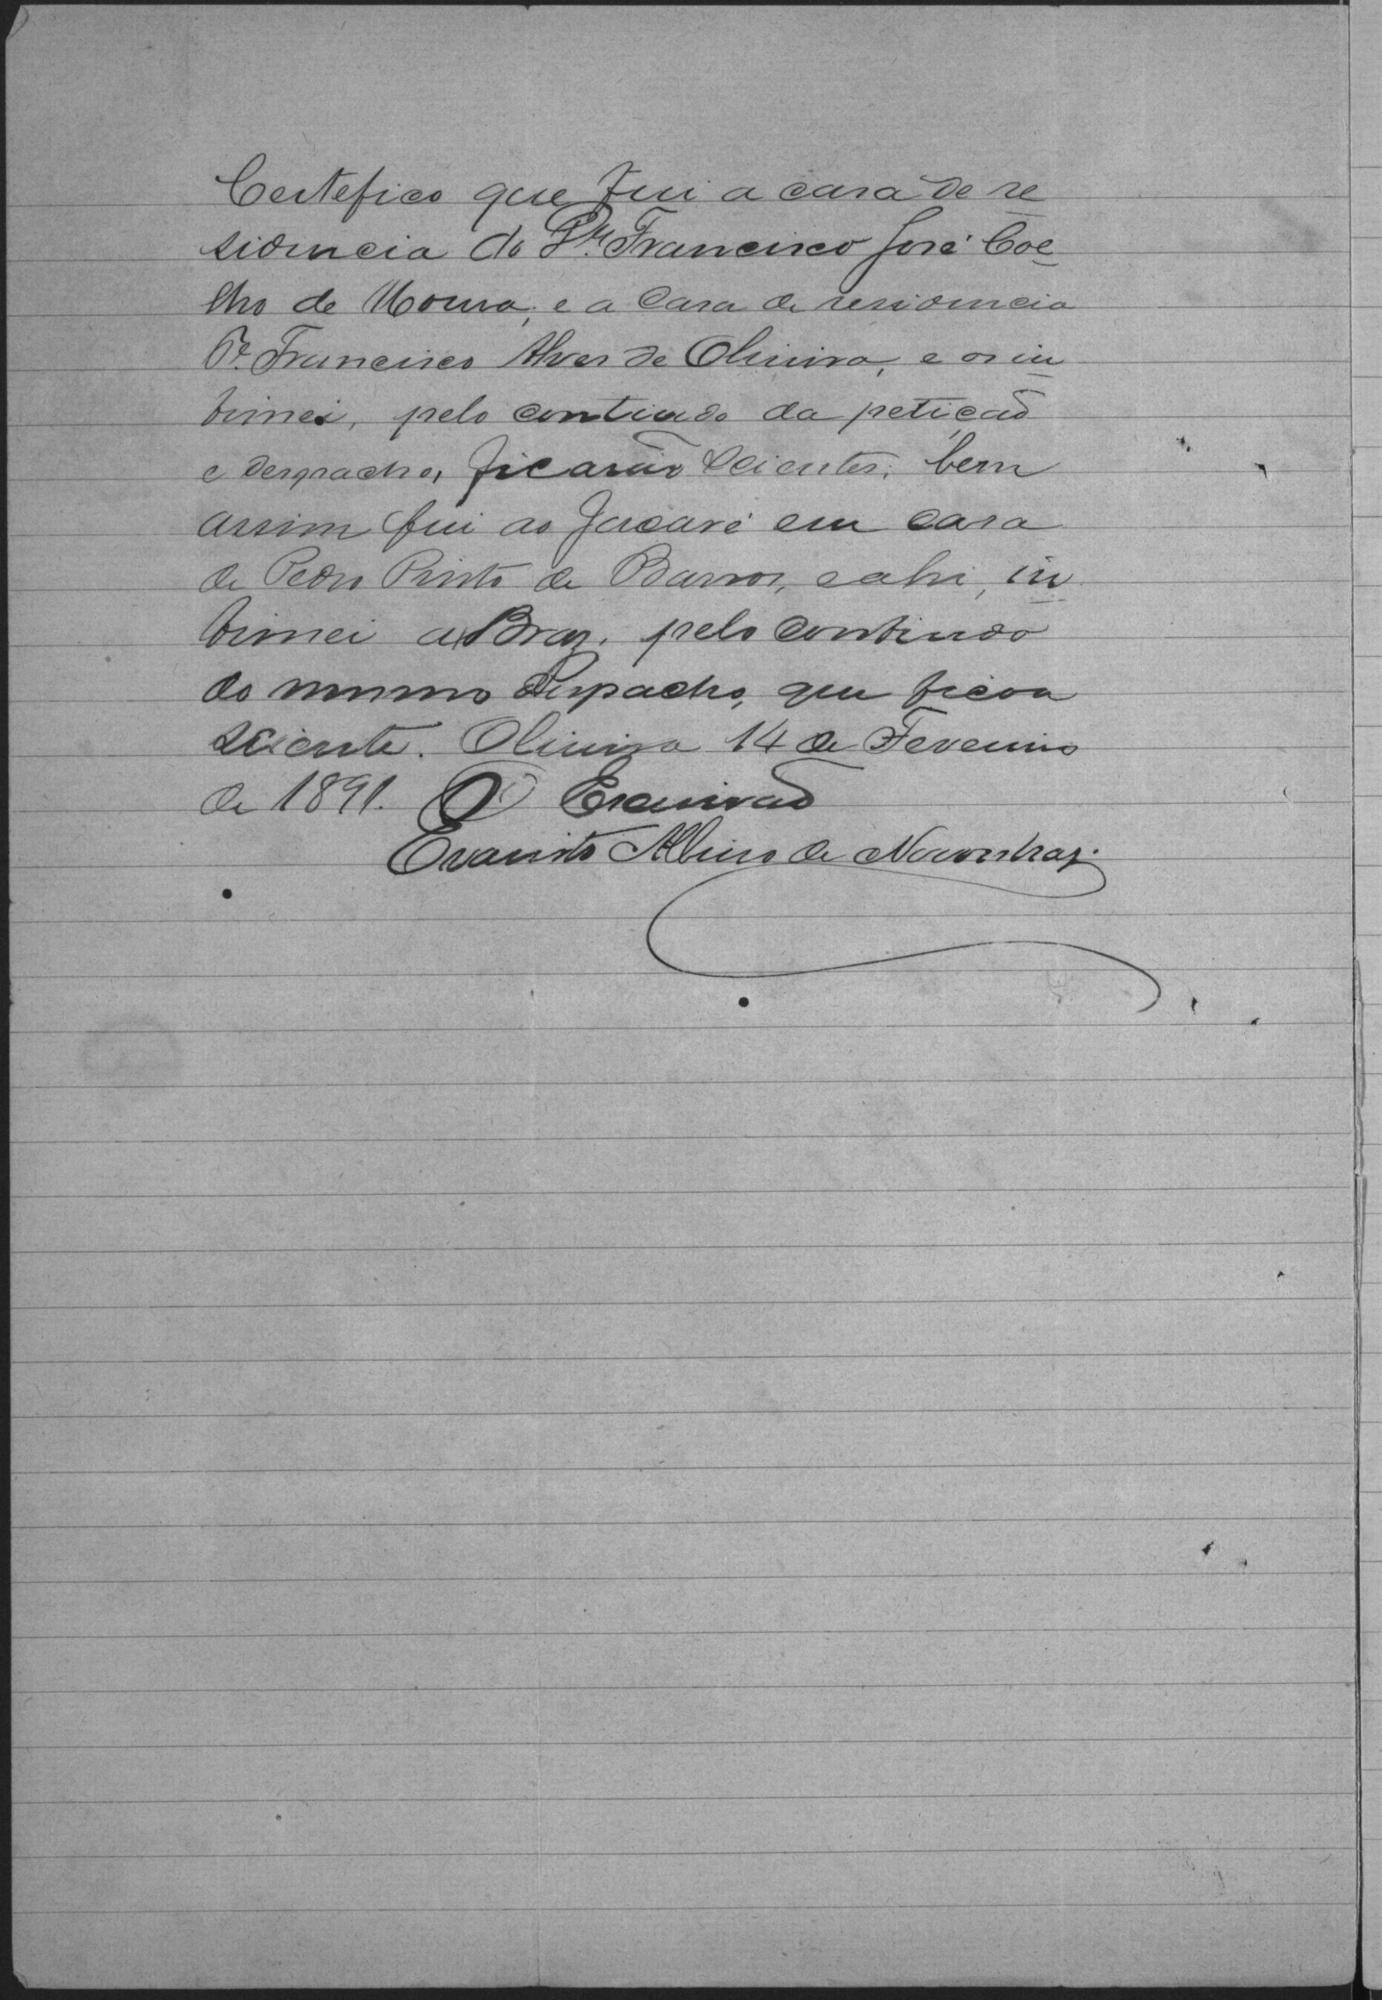 Certefico que fui a casa de re
sidencia do Pe. Francisco José Coe
lho de Moura, e a casa de residencia
Pe. Francisco Alves de Oliveira, e os in
timei, pelo contiudo da petição
e despacho, ficarão scientes, bem
assim fui ao Jacaré em casa
de Pedro Pinto de Barros, e ahi, in
timei a Braz, pelo contiudo
do mesmo Despacho, que ficou
sciente. Oliveira 14 de Fevereiro
de 1891. O Escrivão
Evaristo Albino de